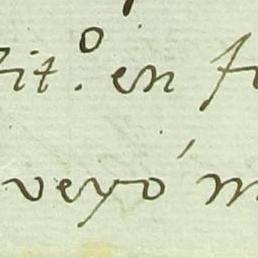 tit.º en f
veyó m